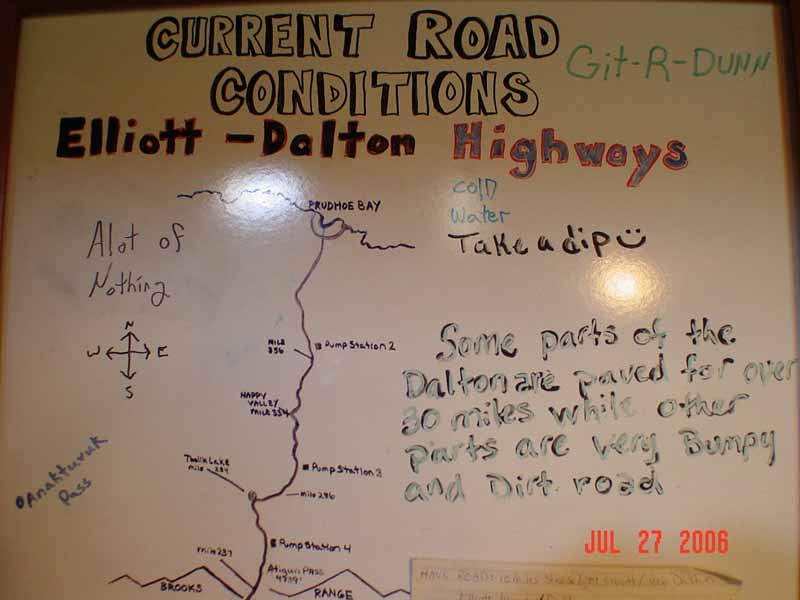 CURRENT ROAD
CONDITIONS
Git-R-Dunn
Elliott - Dalton Highways
Cold
Water
Take a dip
PRUDHOE BAY
Alot of
Nothing
N
W E
S
MILE
356
Pump Station 2
HAPPY
VALLEY
MILE 334
Some parts of the
Dalton are paved for over
30 miles while other
parts are very Bumpy
and Dirt road
Anaktuvuk
Pass
Toolik Lake
mile 284
Pump Station 3
mile 286
Pump Station 4
mile 237
Atigun PASS
4739'
BROOKS RANGE
JUL 27 2006
HAVE ROAD
Dalton
Elliott